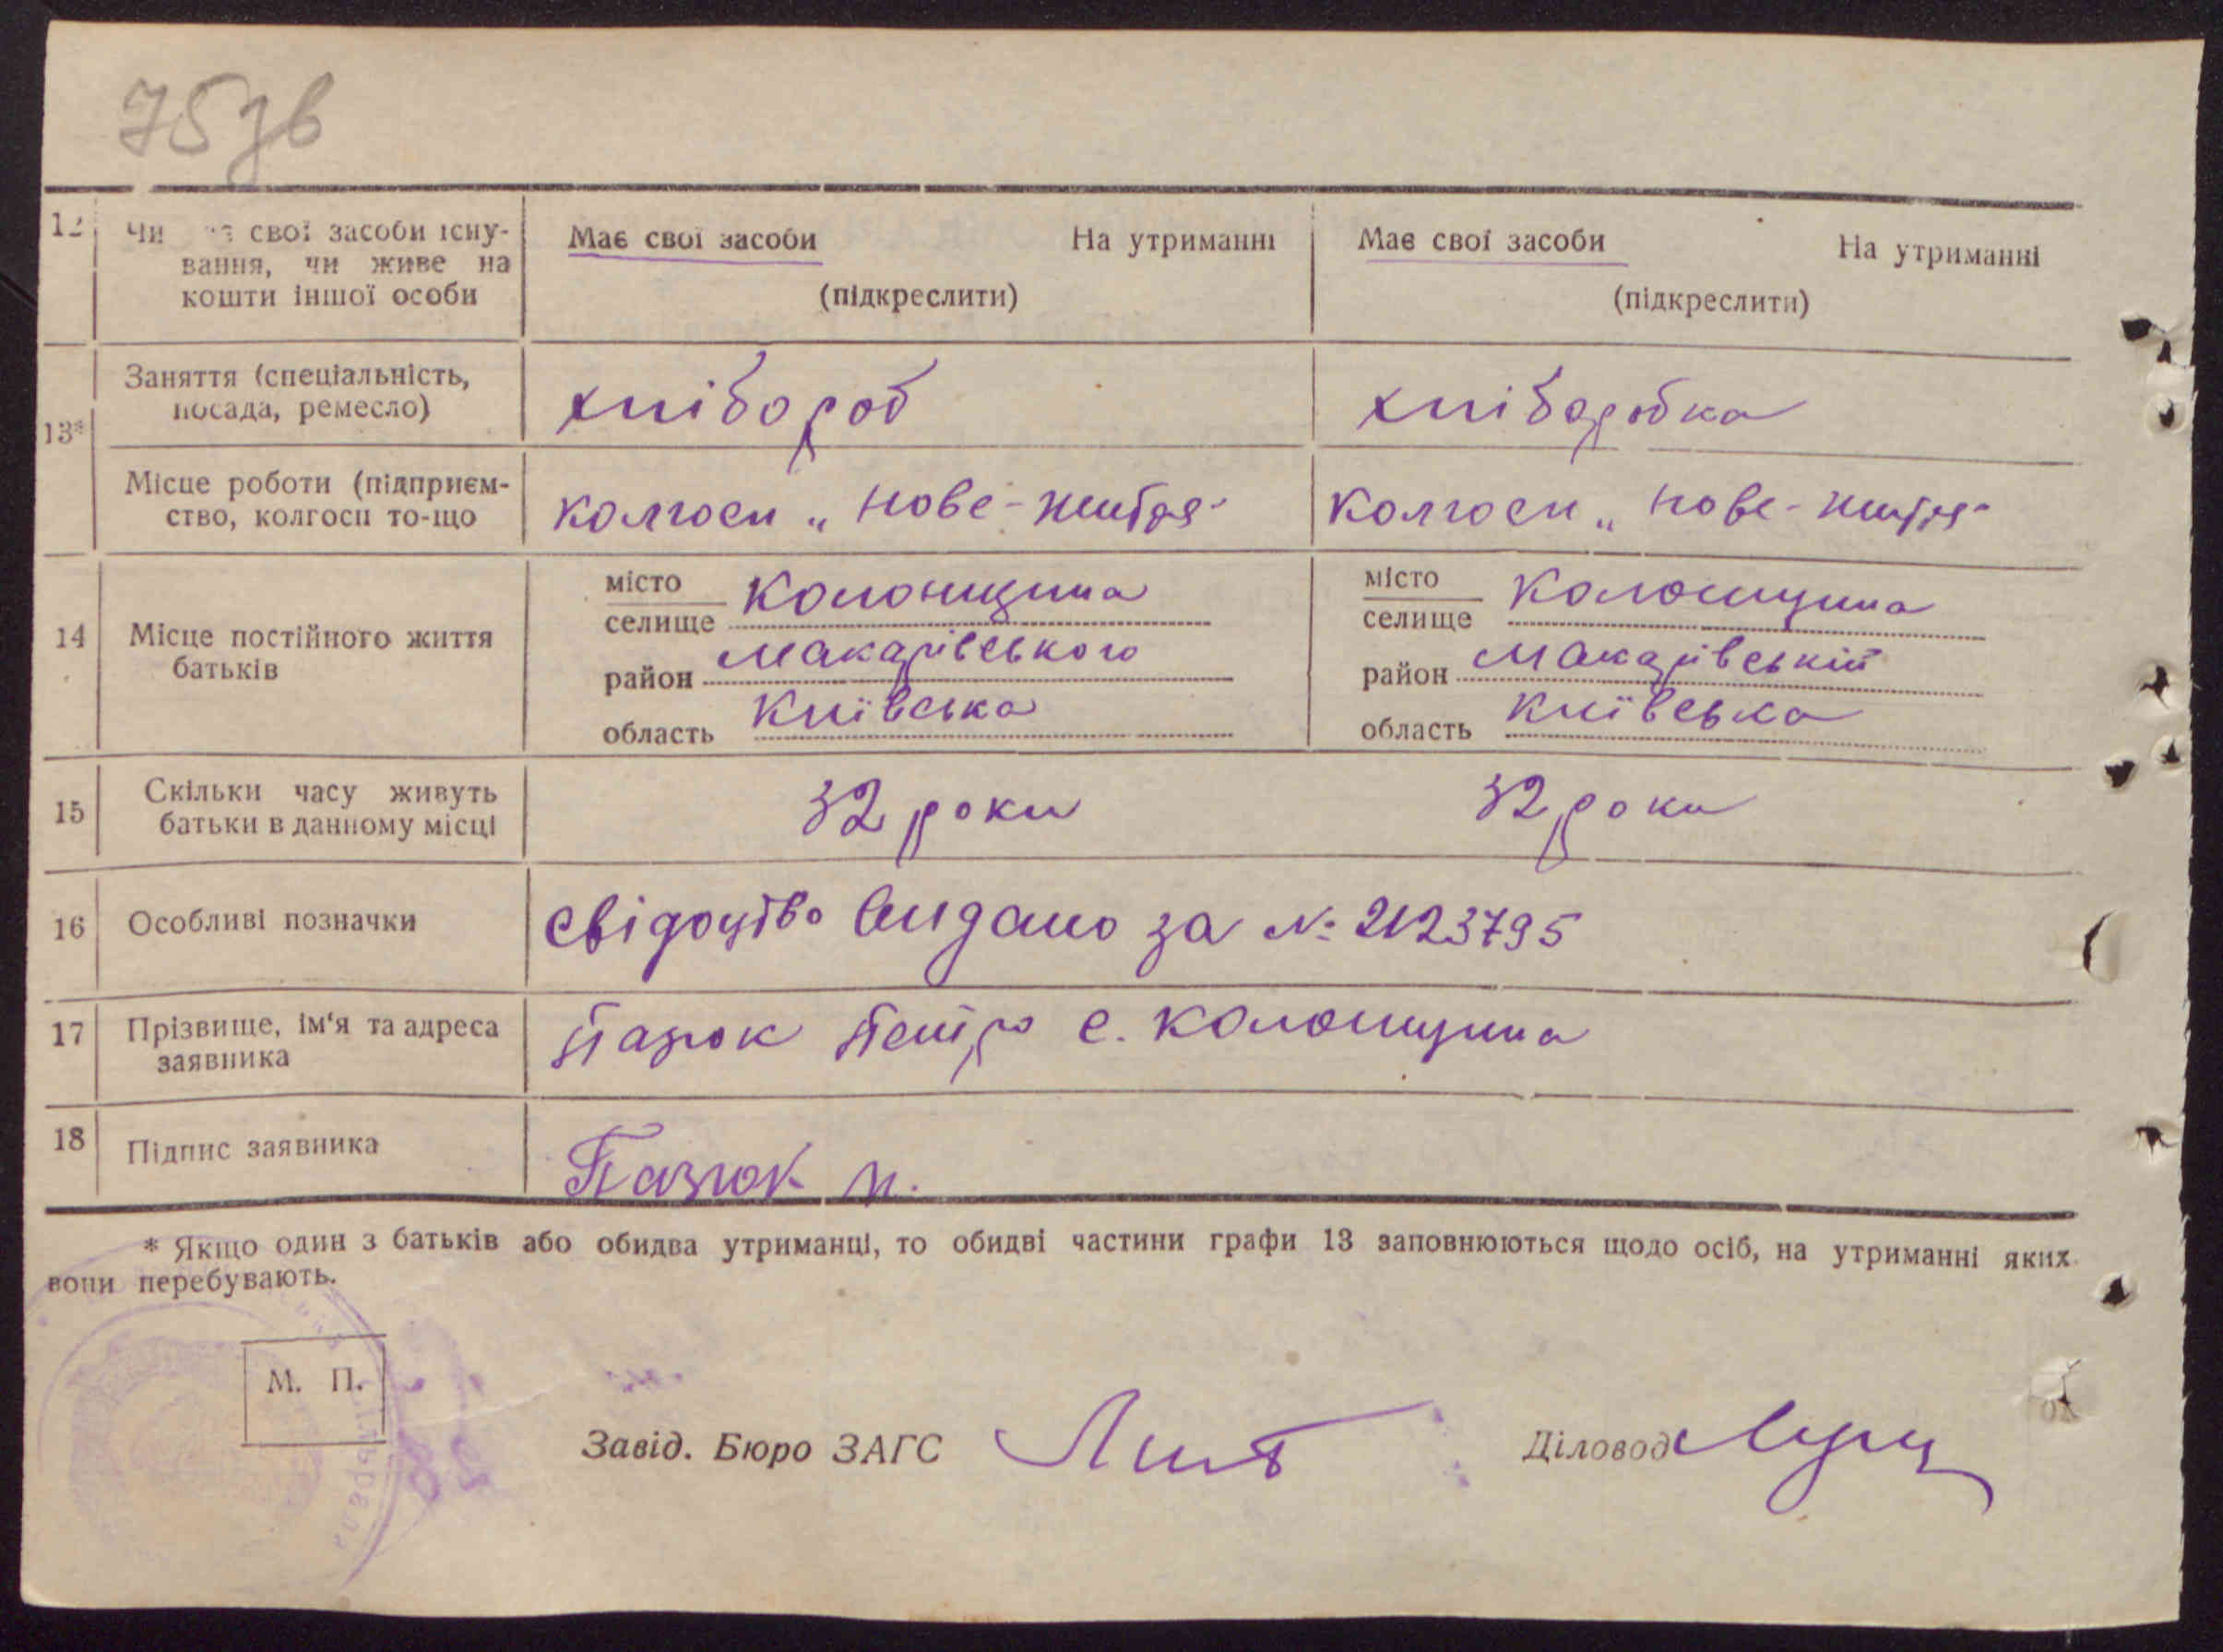 75 зв
12 Чи має свої засоби існу- Має свої засоби На утриманні Має свої засоби На утриманні
вання, чи живе на
кошти іншої особи (підкреслити) (підкреслити)
13* Заняття (спеціальність,
посада, ремесло) хлібороб хліборобка
Місце роботи (підприєм-
ство, колгосп то-що колгосп „Нове-життя" колгосп „Нове-життя"
14 Місце постійного життя
батьків
місто селище Колонщина місто селище Колонщина
район Макарівського район Макарівській
область Київська область Київська
15 Скільки часу живуть
батьки в данному місці 32 роки 32 роки
16 Особливі позначки свідоцтво видано за № 2123795
17 Прізвище, ім'я та адреса
заявника Пазюк Петро с. Колонщина
18 Підпис заявника Пазюк П.
* Якщо один з батьків або обидва утриманці, то обидві частини графи 13 заповнюються щодо осіб, на утриманні яких
вони перебувають.
М. П.
Завід. Бюро ЗАГС Діловод